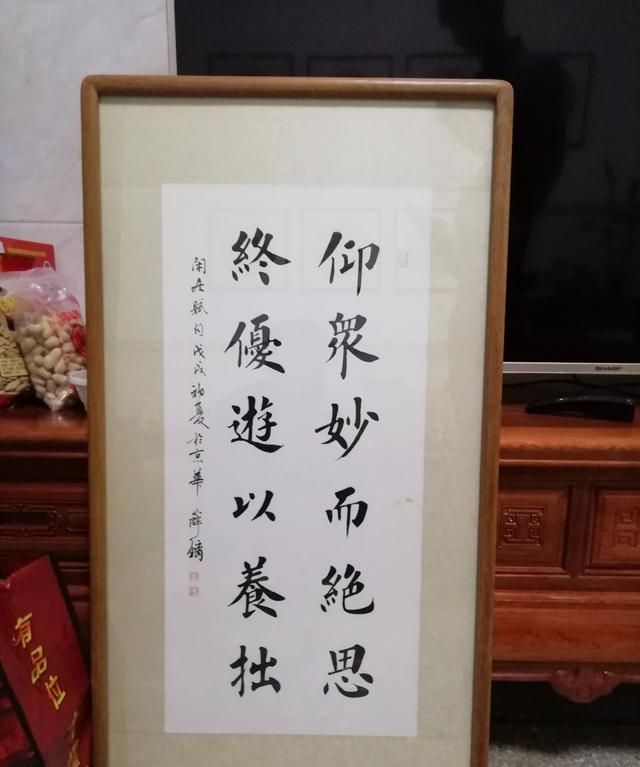 仰眾妙而絕思
終優遊以養拙
閑居賦句戊戌初夏於京華薛鏑
SHARP
有品位